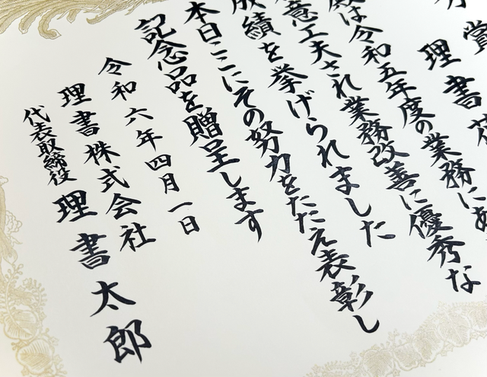 賞
理書
は令和五年度の業務に
意工夫され業務改善に優秀な
成績を挙げられました
本日ここにその努力をたたえ表彰し
記念品を贈呈します
令和六年四月一日
理書株式会社
代表取締役 理書太郎